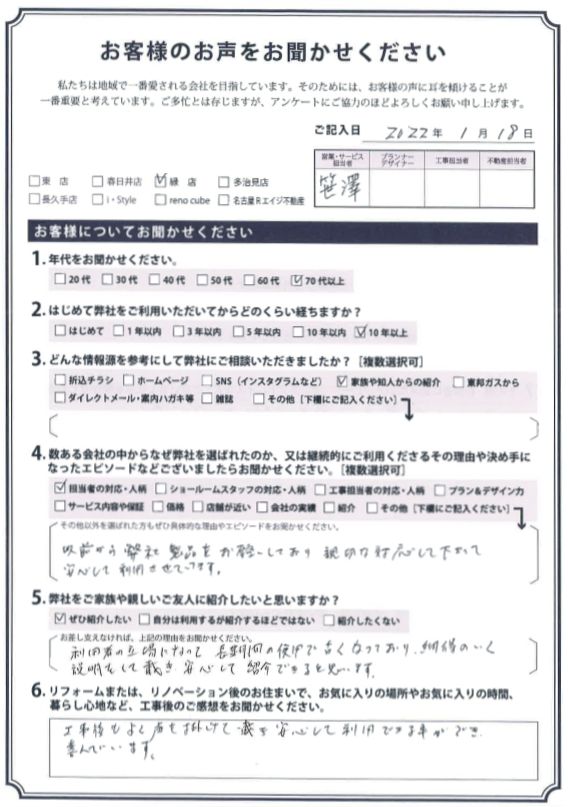 お客様のお声をお聞かせください
私たちは地域で一番愛される会社を目指しています。そのためには、お客様の声に耳を傾けることが
一番重要と考えています。ご多忙とは存じますが、アンケートにご協力のほどよろしくお願い申し上げます。
ご記入日 2022年 1月 18日
営業・サービス担当者 プランナーデザイナー 工事担当者 不動産担当者
笹澤
□東 店 □春日井店 ☑緑 店 □多治見店
□長久手店 □i・Style □reno cube □名古屋Rエイジ不動産
お客様についてお聞かせください
1. 年代をお聞かせください。
□20代 □30代 □40代 □50代 □60代 ☑70代以上
2. はじめて弊社をご利用いただいてからどのくらい経ちますか？
□はじめて □1年以内 □3年以内 □5年以内 □10年以内 ☑10年以上
3. どんな情報源を参考にして弊社にご相談いただきましたか？［複数選択可］
□折込チラシ □ホームページ □SNS（インスタグラムなど） ☑家族や知人からの紹介 □東邦ガスから
□ダイレクトメール・案内ハガキ等 □雑誌 □その他［下欄にご記入ください］
4. 数ある会社の中からなぜ弊社を選ばれたのか、又は継続的にご利用くださるその理由や決め手に
なったエピソードなどございましたらお聞かせください。［複数選択可］
☑担当者の対応・人柄 □ショールームスタッフの対応・人柄 □工事担当者の対応・人柄 □プラン&デザイン力
□サービス内容や保証 □価格 □店舗が近い □会社の実績 □紹介 □その他［下欄にご記入ください］
その他以外を選ばれた方もぜひ具体的な理由やエピソードをお聞かせください。
以前から弊社製品をお願いしており 親切な対応して下さって
安心して利用させています。
5. 弊社をご家族や親しいご友人に紹介したいと思いますか？
☑ぜひ紹介したい □自分は利用するが紹介するほどではない □紹介したくない
お差し支えなければ、上記の理由をお聞かせください。
利用者の立場になって 長期間の使用で古くなっており 納得のいく
説明をして戴き 安心して紹介できると思います。
6. リフォームまたは、リノベーション後のお住まいで、お気に入りの場所やお気に入りの時間、
暮らし心地など、工事後のご感想をお聞かせください。
工事後もよく声を掛けて戴き安心して利用できる事ができ
喜んでいます。